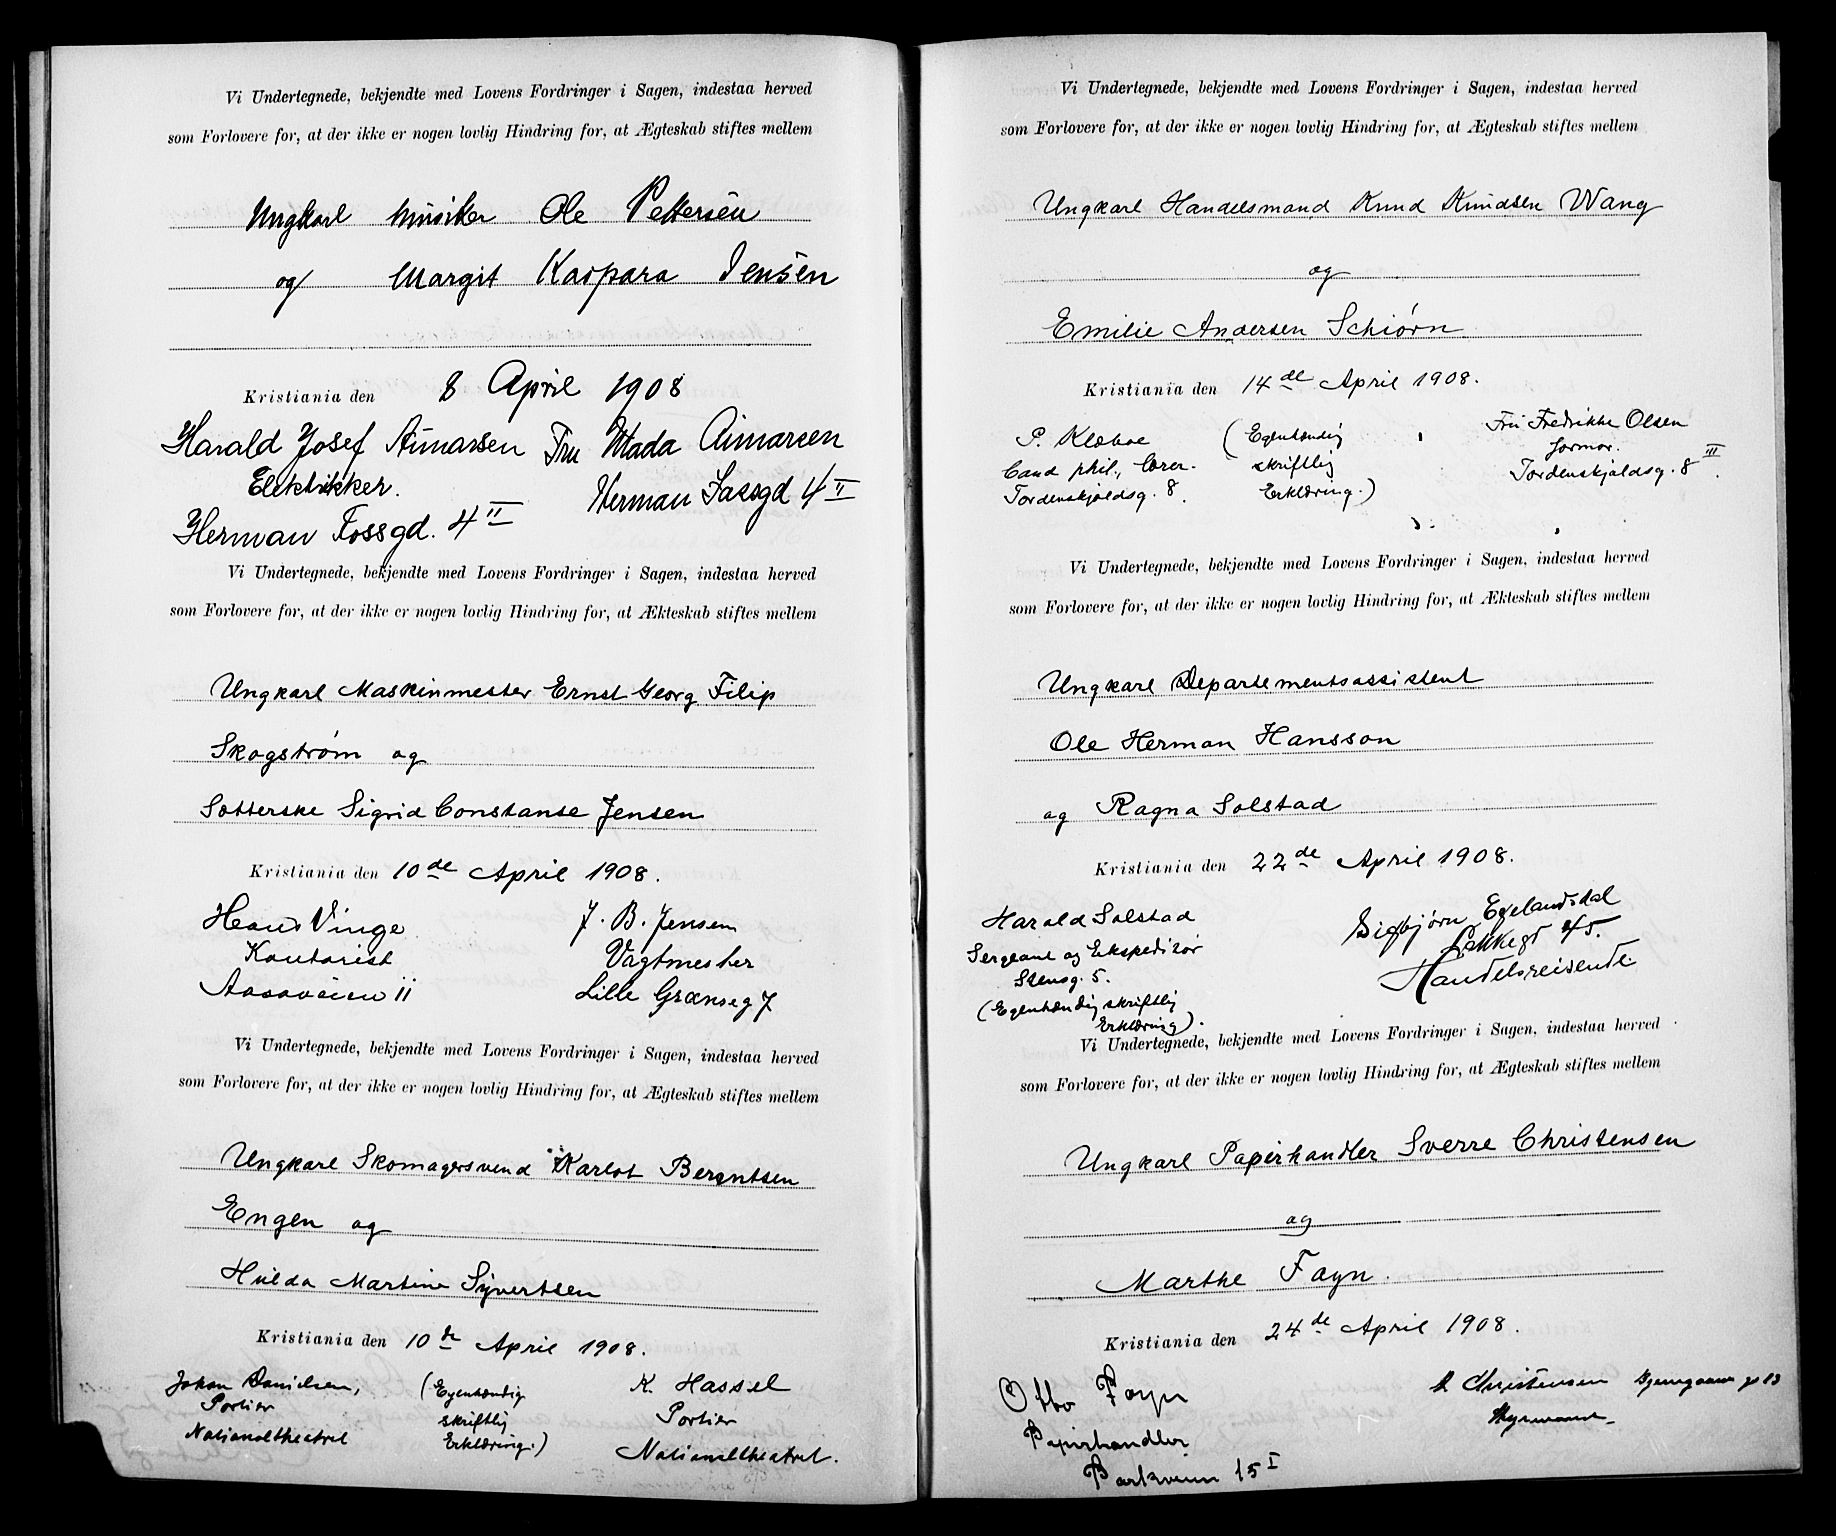 Vi Undertegnede, bekjendte med Lovens Fordringer i Sagen, indestaa herved
som Forlovere for, at der ikke er nogen lovlig Hindring for, at Ægteskab stiftes mellem
Ungkarl Musiker Ole Pettersen
og Margit Kaspara Jensen
Kristiania den 8 April 1908
Harald Josef Aimarsen Fru Mada Aimarsen
Elektrikker. Herman Fossgd 4 II
Herman Fossgd. 4 II
Vi Undertegnede, bekjendte med Lovens Fordringer i Sagen, indestaa herved
som Forlovere for, at der ikke er nogen lovlig Hindring for, at Ækteskab stiftes mellem
Ungkarl Maskinmester Ernst Georg Filip
Skogstrøm og
Sætterske Sigrid Constanse Jensen
Kristiania den 10de April 1908.
Hans Vinge J. B. Jensen
Kontorist Vagtmester
Aasaveien 11 Lille Grænseg 7
Vi Undertegnede, bekjendte med Lovens Fordringer i Sagen, indestaa herved
som Forlovere for, at der ikke er nogen lovlig Hindring for, at Ægteskab stiftes mellem
Ungkarl Skomagersvend Karlot Berentsen
Engen og
Hulda Martine Syvertsen
Kristiania den 10de April 1908.
Johan Danielsen, (Egenhændig K. Hassel
Portier skriftlig Portier
Nationaltheatret Erklæring.) Nationaltheatret.
Vi Undertegnede, bekjendte med Lovens Fordringer i Sagen, indestaa herved
som Forlovere for, at der ikke er nogen lovlig Hindring for, at Ægteskab stiftes mellem
Ungkarl Handelsmand Knud Knudsen Wang
og
Emilie Andersen Schiørn
Kristiania den 14de April 1908.
P. Klæboe (Egenhændig Fru Fredrikke Olsen
Cand phil., lærer. skriftlig Jormor.
Tordenskjoldsg. 8. Erklæring.) Tordenskjoldsg. 8 III.
Vi Undertegnede, bekjendte med Lovens Fordringer i Sagen, indestaa herved
som Forlovere for, at der ikke er nogen lovlig Hindring for, at Ækteskab stiftes mellem
Ungkarl Departementsassistent
Ole Herman Hansson
og Ragna Solstad
Kristiania den 22de April 1908.
Harald Solstad Sigbjørn Egelandsdal
Sergeant og Ekspeditør Lakkegt 45.
Stensg. 5. Handelsreisende.
(Egenhændig skriftlig
Erklæring).
Vi Undertegnede, bekjendte med Lovens Fordringer i Sagen, indestaa herved
som Forlovere for, at der ikke er nogen lovlig Hindring for, at Ægteskab stiftes mellem
Ungkarl Papirhandler Sverre Christensen
og
Marthe Fayn.
Kristiania den 24de April 1908.
Otto Fayn Christensen
Papirhandler Styrmand
Parkveien 15 I